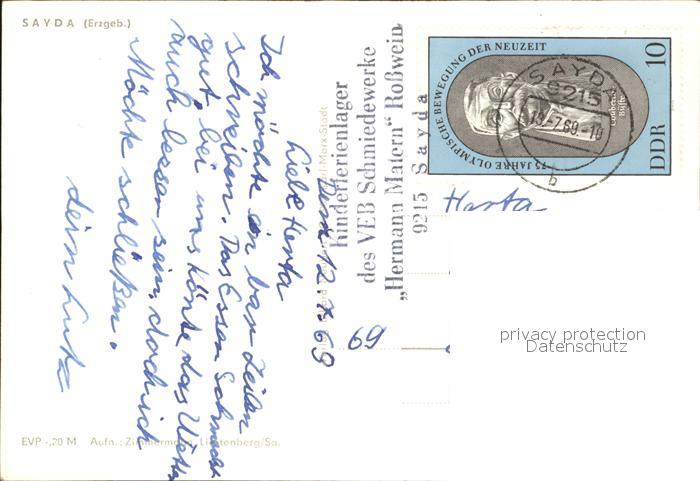 SAYDA (Erzgeb.)
Kinderferienlager
des VEB Schmiedewerke
„Hermann Matern" Roßwein
9215 Sayda
75 JAHRE OLYMPISCHE BEWEGUNG DER NEUZEIT
Coubertin
Büste
10
DDR
SAYDA
9215
-7.69-10
b
Karl-Marx-Stadt
Herta
69
den 12.7.69
Liebe Herta
Ich möchte ein bar Zeilen
schreiben. Das Essen schmeckt
gut, bei uns könte das Wetter
auch besser sein, doch ich
Möchte schließen.
dein Lutz
EVP -,20 M Aufn.: Zimmermann, Lichtenberg/Sa.
privacy protection
Datenschutz